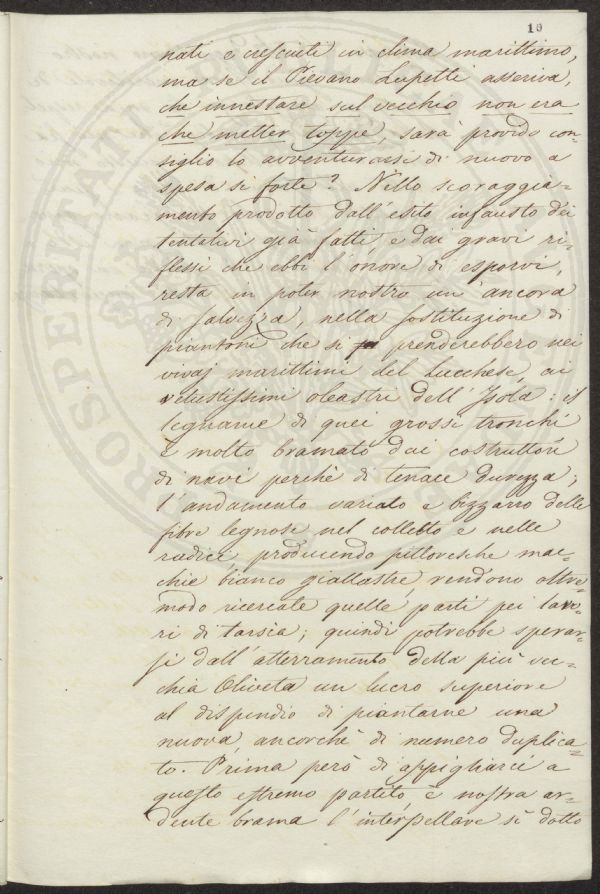 10
nati e cresciuti in clima marittimo,
ma se il Pievano Lupetti asseriva,
che innestare sul vecchio non era
che metter toppe, sarà provido con-
siglio lo avventurarsi di nuovo a
spesa sì forte? Nello scoraggia-
mento prodotto dall'esito infausto dei
tentativi già fatti, e dai gravi ri-
flessi che ebbi l'onore di esporvi,
resta in poter nostro un'ancora
di salvezza, nella sostituzione di
piantoni che si prenderebbero nei
vivaj marittimi del Lucchese ai
vetustissimi oleastri dell'Isola: il
legname di quei grossi tronchi
è molto bramato dai costruttori
di navi perchè di tenace durezza,
l'andamento variato e bizzarro delle
fibre legnose nel colletto e nelle
radici, producendo pittoresche mac-
chie bianco giallastre, rendono oltre-
modo ricercate quelle parti pei lavo-
ri di tarsia; quindi potrebbe sperar-
si dall'atterramento della più vec-
chia Oliveta un lucro superiore
al dispendio di piantarne una
nuova, ancorchè di numero duplica-
to. Prima però di appigliarci a
questo estremo partito, è nostra ar-
dente brama l'interpellare sì dotto
PROSPERITATI